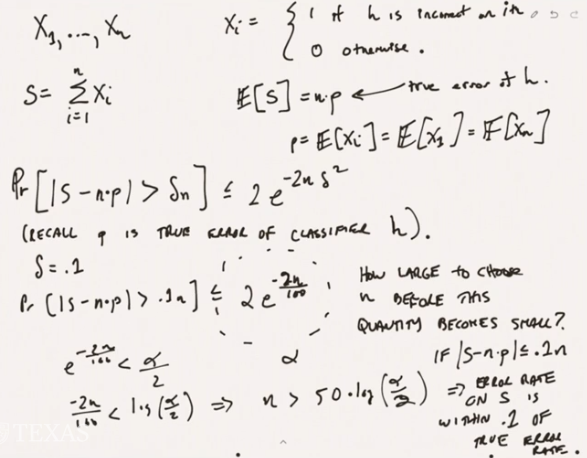 X₁, ..., Xₙ
Xᵢ = { 1 if h is incorrect on ith
0 otherwise.
S = Σᵢ₌₁ⁿ Xᵢ
𝔼[S] = n·p ← true error of h.
p = 𝔼[Xᵢ] = 𝔼[X₁] = 𝔼[Xₙ]
Pr[|S − n·p| > δn] ≤ 2e^(−2nδ²)
(RECALL p IS TRUE ERROR OF CLASSIFIER h).
δ = .1
Pr[|S − n·p| > .1n] ≤ 2e^(−2n/100)
α
HOW LARGE TO CHOOSE
n BEFORE THIS
QUANTITY BECOMES SMALL?
e^(−2n/100) < α/2
−2n/100 < log(α/2) ⇒ n > 50·log(α/2)
IF |S − n·p| ≤ .1n
⇒ ERROR RATE
ON S IS
WITHIN .1 OF
TRUE ERROR
RATE.
TEXAS